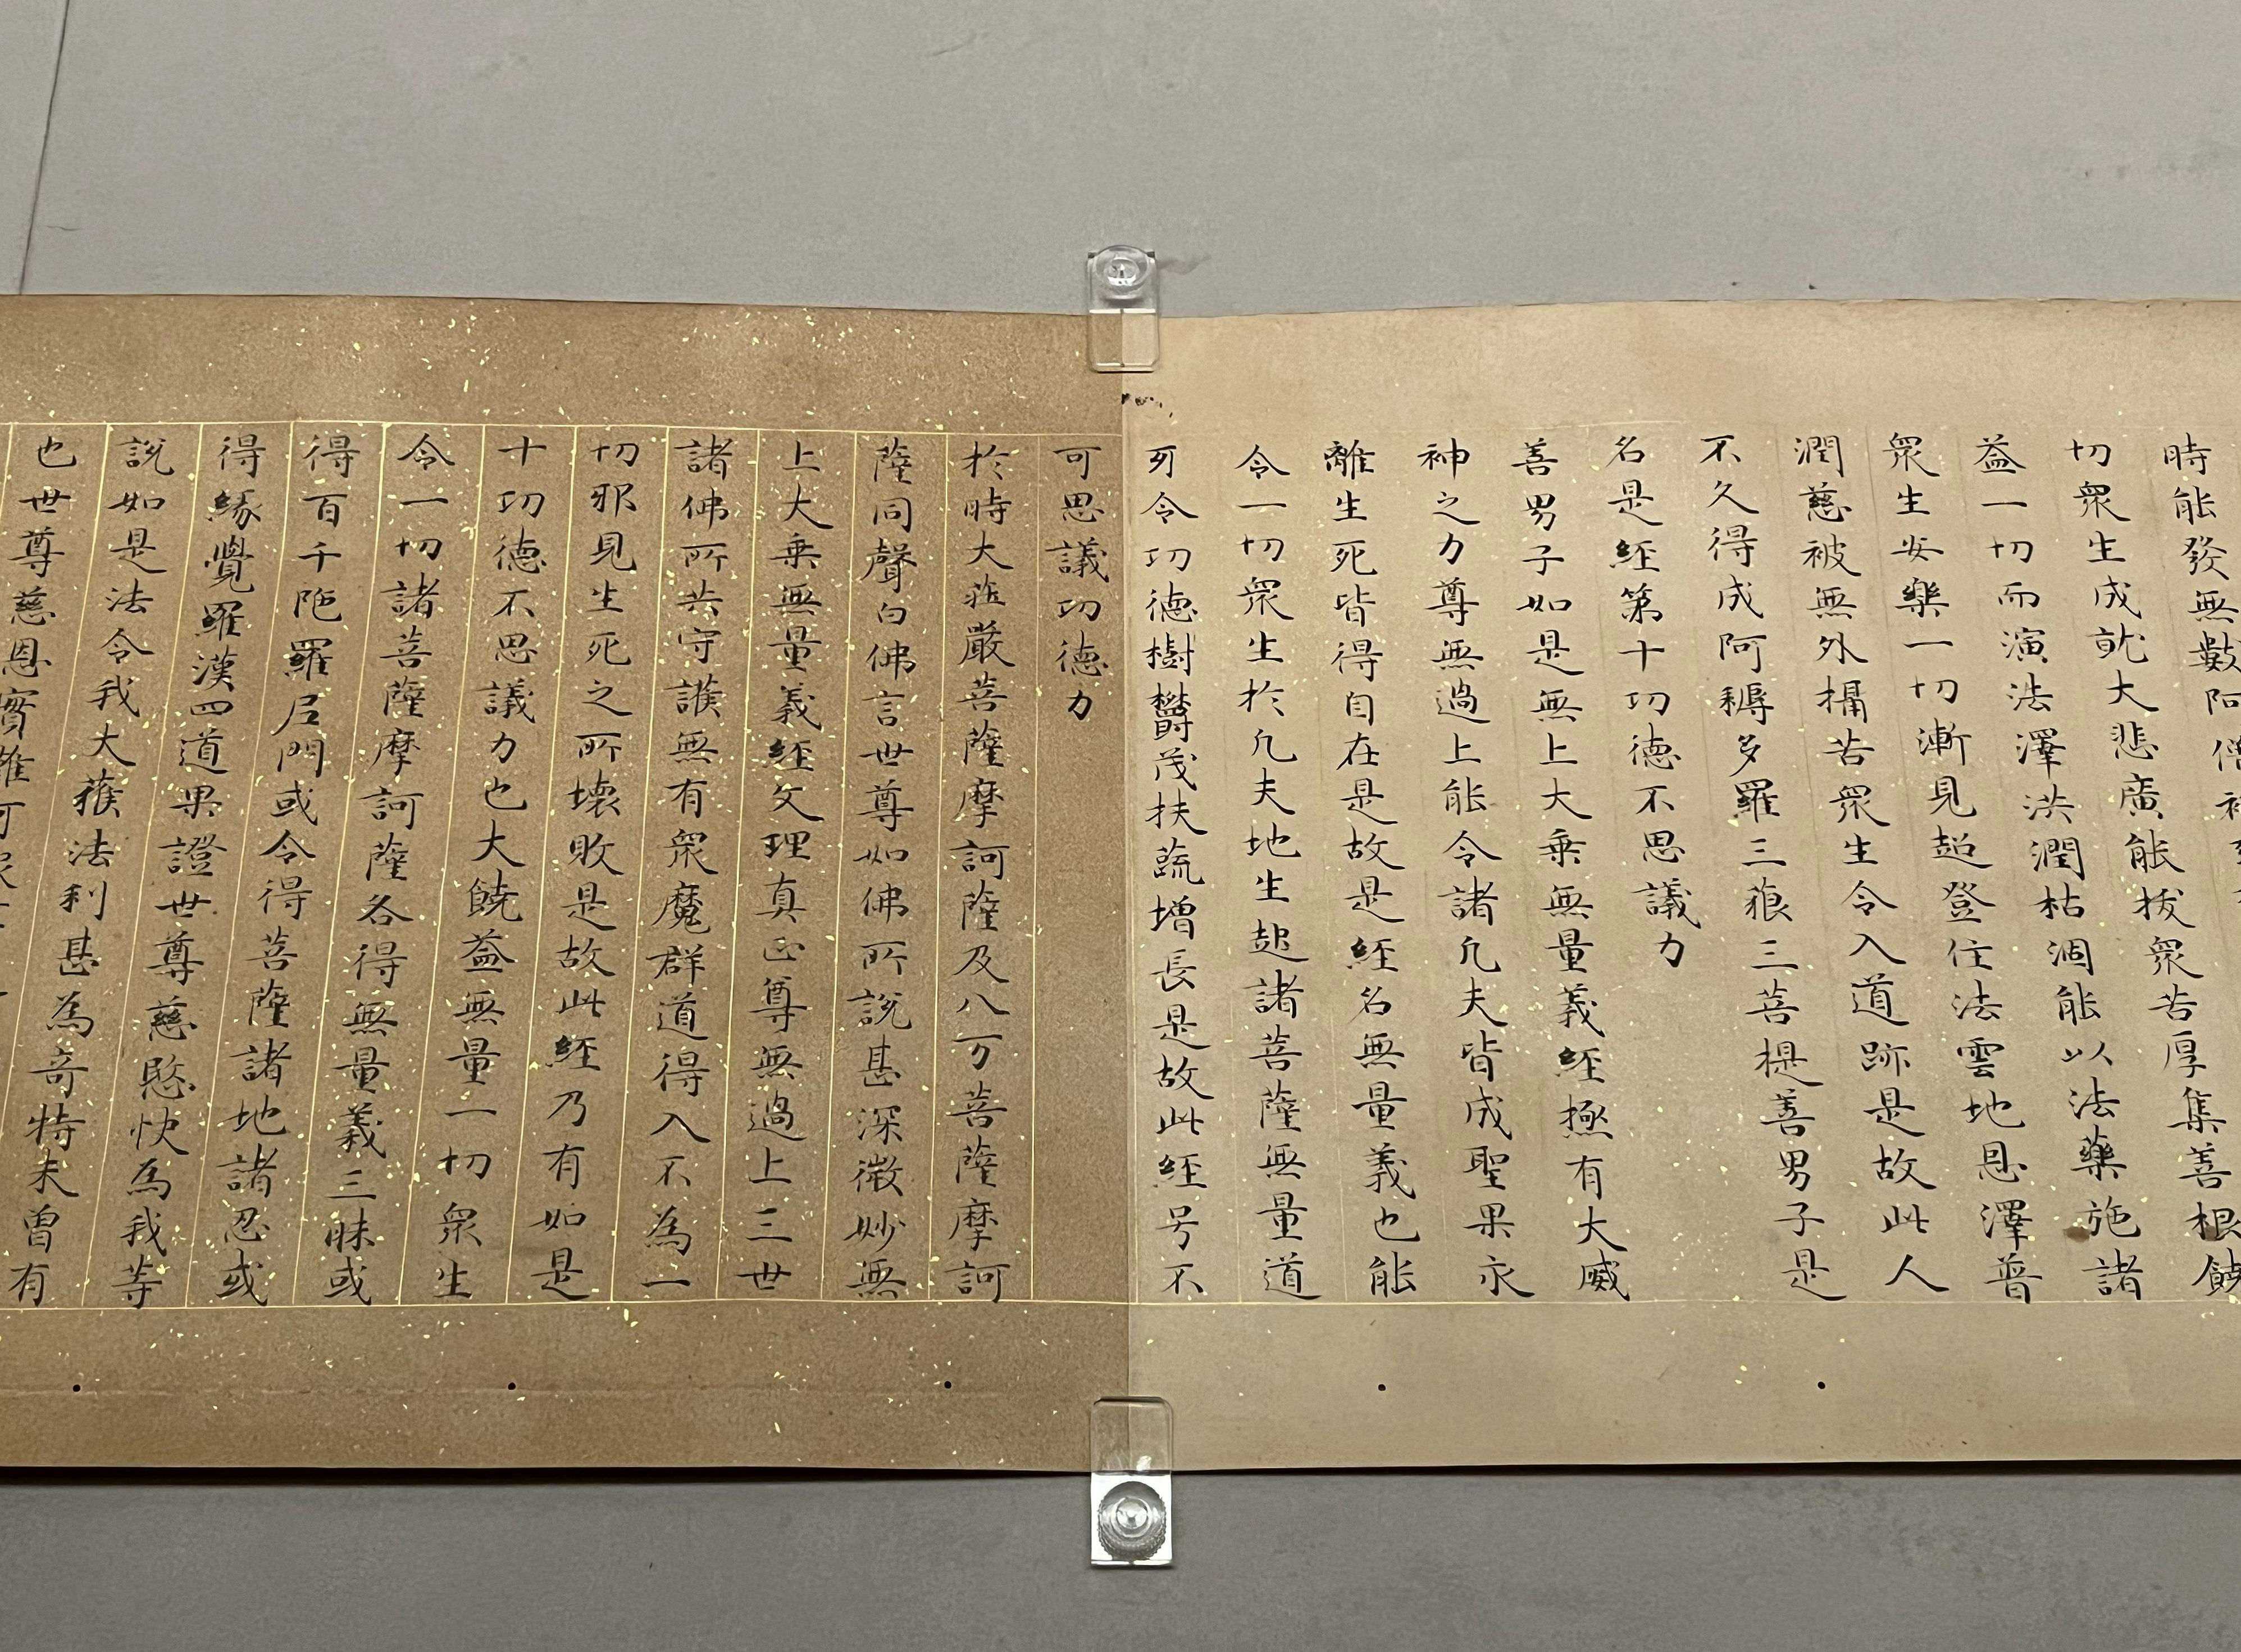 時能發無數阿僧
切衆生成就大悲廣能拔衆苦厚集善根饒
益一切而演法澤洪潤枯涸能以法藥施諸
衆生安樂一切漸見超登住法雲地恩澤普
潤慈被無外攝苦衆生令入道跡是故此人
不久得成阿耨多羅三藐三菩提善男子是
名是經第十功德不思議力
善男子如是無上大乘無量義經極有大威
神之力尊無過上能令諸凡夫皆成聖果永
離生死皆得自在是故是經名無量義也能
令一切衆生於凡夫地生起諸菩薩無量道
牙令功德樹欝茂扶蔬增長是故此經号不
可思議功德力
於時大莊嚴菩薩摩訶薩及八万菩薩摩訶
薩同聲白佛言世尊如佛所說甚深微妙無
上大乘無量義經文理真正尊無過上三世
諸佛所共守護無有衆魔群道得入不為一
切邪見生死之所壞敗是故此經乃有如是
十功德不思議力也大饒益無量一切衆生
令一切諸菩薩摩訶薩各得無量義三昧或
得百千陁羅尼門或令得菩薩諸地諸忍或
得緣覺羅漢四道果證世尊慈愍快為我等
說如是法令我大獲法利甚為奇特未曾有
也世尊慈恩實難可